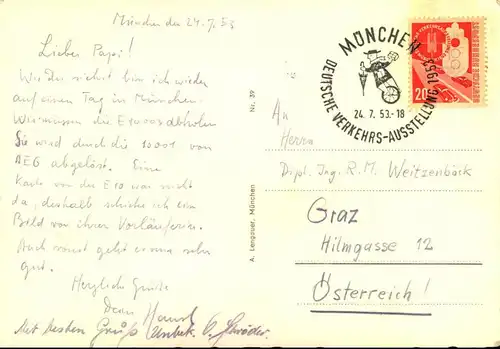 München den 24.7.53
Lieber Papi!
Wie Du siehst bin ich wieder
auf einen Tag in München.
Wir müssen die E10003 abholen
Sie wird durch die 10001 von
AEG abgelöst. Eine
Karte von der E10 war nicht
da, deshalb schicke ich ein
Bild von ihrer Vorläuferin.
Auch sonst geht es uns sehr
gut.
Herzliche Grüße
Dein
Mit besten Gruß Unbek.
Nr. 39
A. Lengauer, München
MÜNCHEN
DEUTSCHE VERKEHRS-AUSSTELLUNG 1953
24. 7. 53.-18
20
An
Herrn
Dipl. Ing. R. M. Weitzenböck
Graz
Hilmgasse 12
Österreich!